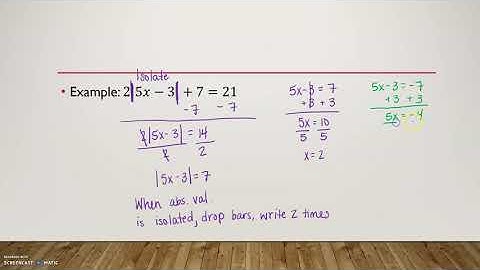 Isolate
• Example: 2|5x − 3| + 7 = 21
-7 -7
2|5x-3| = 14
2 2
|5x-3| = 7
When abs. val.
is isolated, drop bars, write 2 times
5x-3 = 7
+3 +3
5x = 10
5 5
x = 2
5x-3 = -7
+3 +3
5x = -4
RECORDED WITH
SCREENCAST MATIC